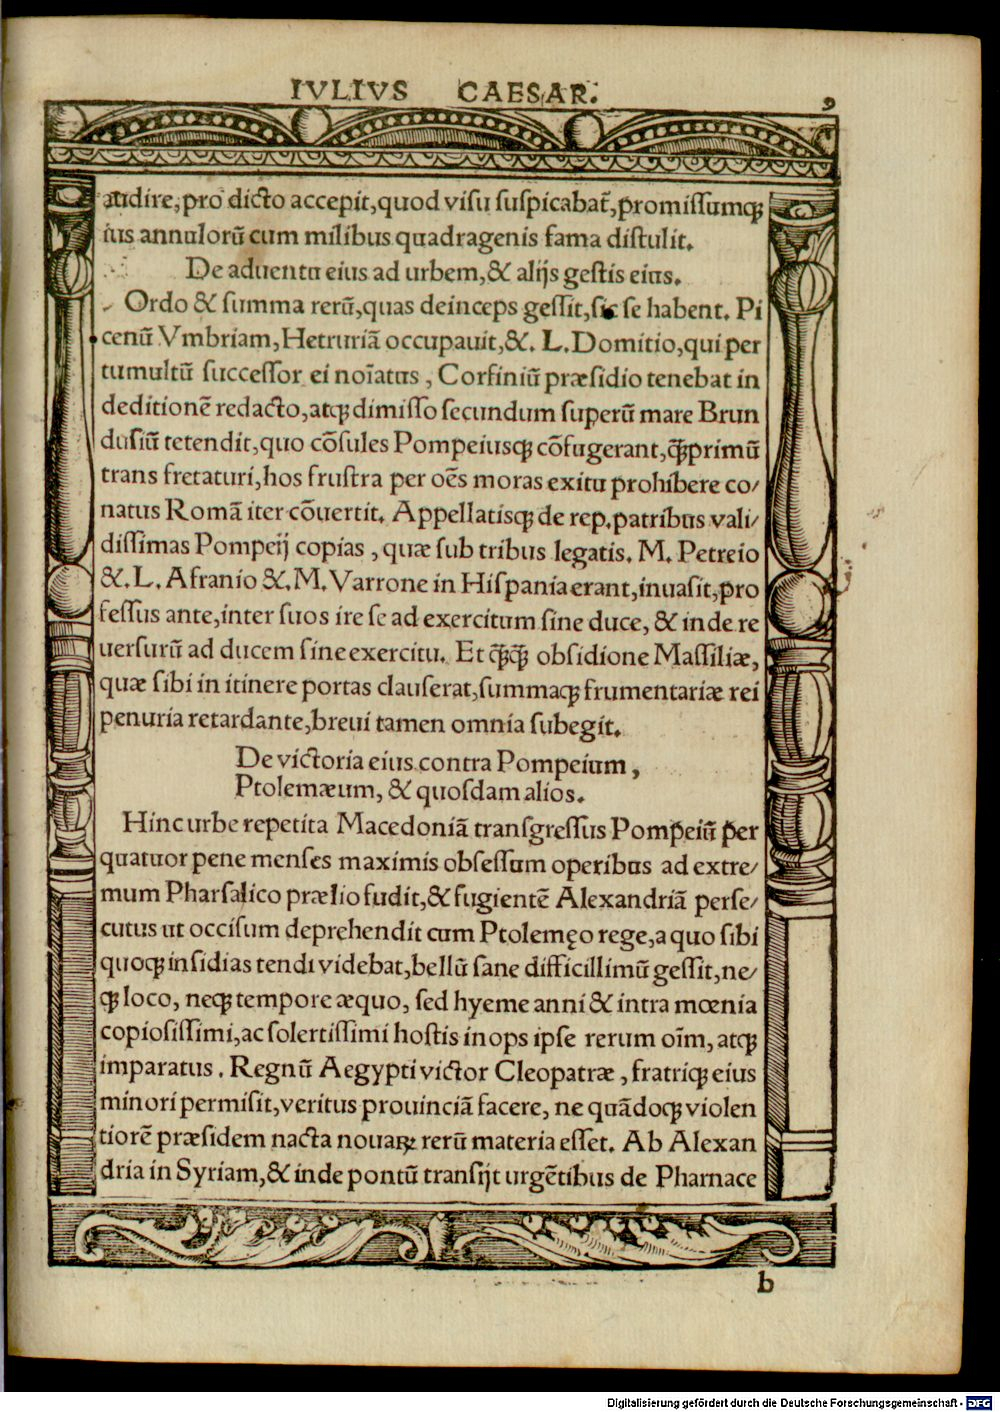 IVLIVS CAESAR. 9
audire, pro dicto accepit, quod visu suspicabat̃, ꝓmissumqꝫ
ius annulorũ cum milibus quadragenis fama distulit.
De aduentu eius ad urbem, & alijs gestis eius.
Ordo & summa rerũ, quas deinceps gessit, sic se habent. Pi
cenũ Vmbriam, Hetruriã occupauit, &. L. Domitio, qui per
tumultũ successor ei noĩatus, Corfiniũ præsidio tenebat in
deditionẽ redacto, atqꝫ dimisso secundum superũ mare Brun
dusiũ tetendit, quo cõsules Pompeiusqꝫ cõfugerant, q̃ꝫprimũ
trans fretaturi, hos frustra per oẽs moras exitu prohibere co/
natus Romã iter cõuertit. Appellatisqꝫ de rep. patribus vali/
dissimas Pompeij copias, quæ sub tribus legatis. M. Petreio
&. L. Afranio &. M. Varrone in Hispania erant, inuasit, pro
fessus ante, inter suos ire se ad exercitum sine duce, & inde re
uersurũ ad ducem sine exercitu. Et q̃ꝫq̃ꝫ obsidione Massiliæ,
quæ sibi in itinere portas clauserat, summaqꝫ frumentariæ rei
penuria retardante, breui tamen omnia subegit.
De victoria eius contra Pompeium,
Ptolemæum, & quosdam alios.
Hinc urbe repetita Macedoniã transgressus Pompeiũ per
quatuor pene menses maximis obsessum operibus ad extre/
mum Pharsalico prælio fudit, & fugientẽ Alexandriã perse/
cutus ut occisum deprehendit cum Ptolemęo rege, a quo sibi
quoqꝫ insidias tendi videbat, bellũ sane difficillimũ gessit, ne/
qꝫ loco, neqꝫ tempore æquo, sed hyeme anni & intra mœnia
copiosissimi, ac solertissimi hostis inops ipse rerum oĩm, atqꝫ
imparatus. Regnũ Aegypti victor Cleopatræ, fratriqꝫ eius
minori permisit, veritus prouinciã facere, ne quãdoqꝫ violen
tiorẽ præsidem nacta nouaꝝ rerũ materia esset. Ab Alexan
dria in Syriam, & inde pontũ transijt urgẽtibus de Pharnace
b
Digitalisierung gefördert durch die Deutsche Forschungsgemeinschaft - DFG